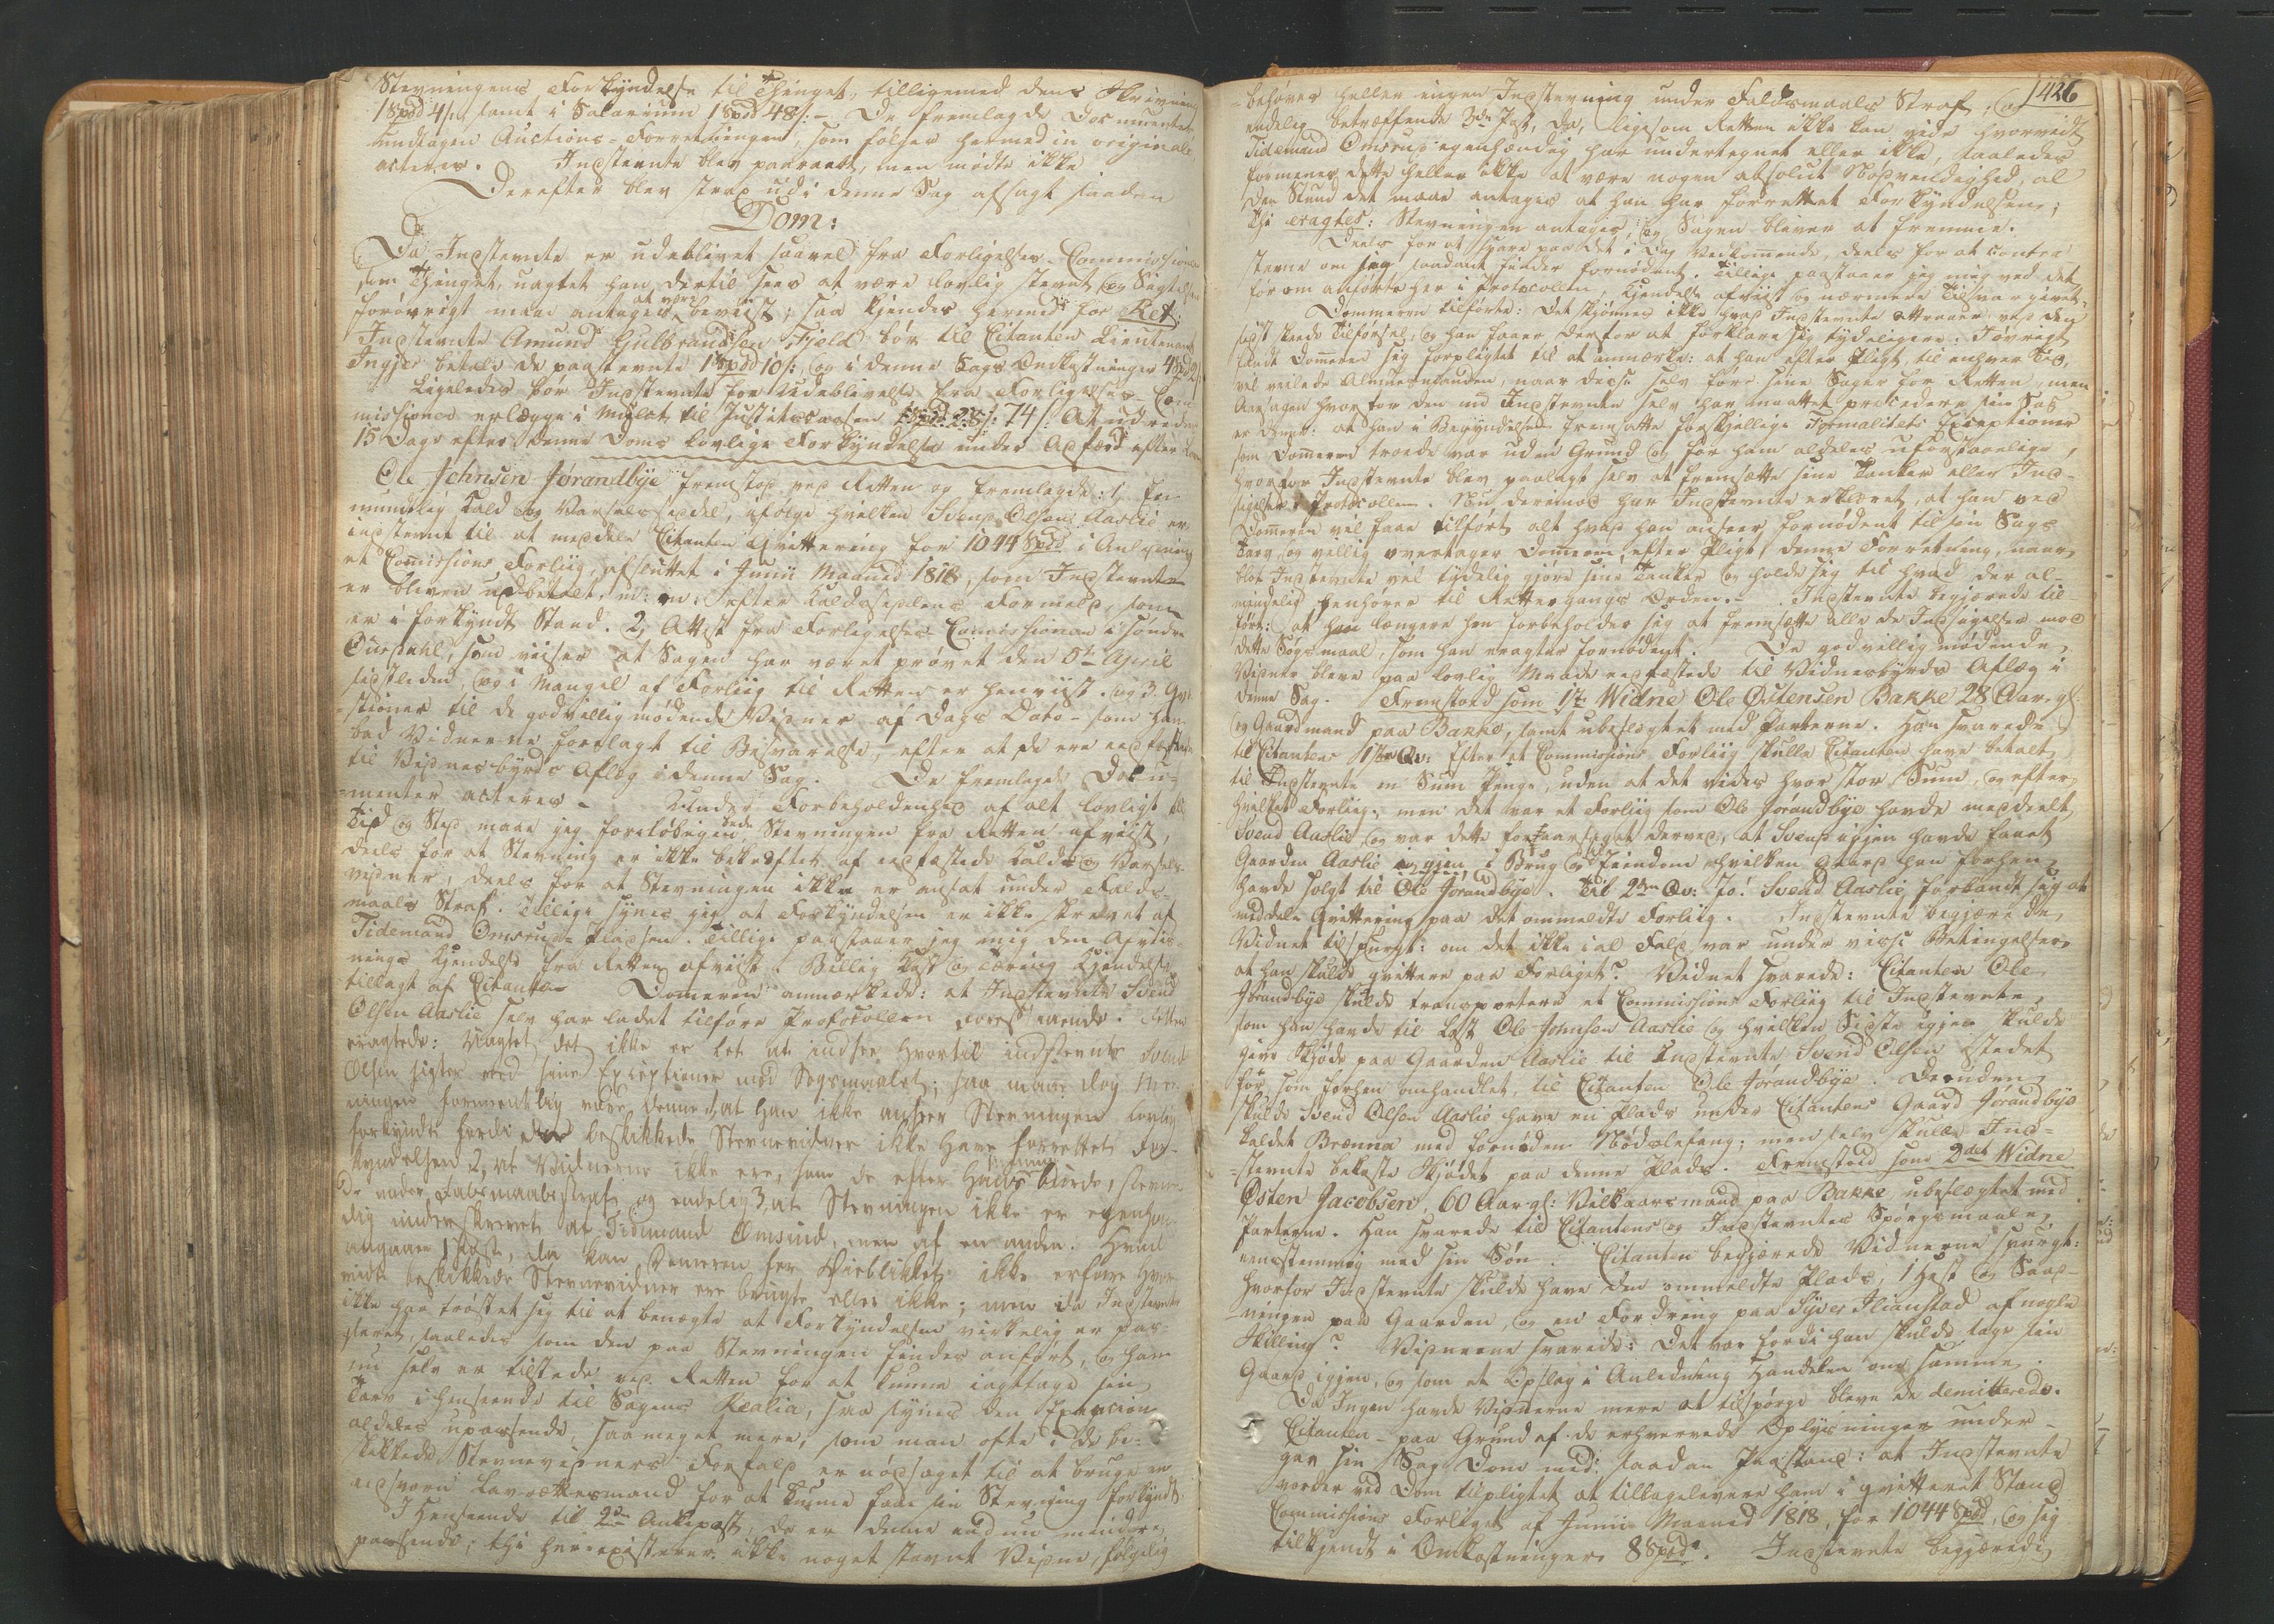 Stevningens Forkyndelse til Thinget, tilligemed dens Skrivning
1 Spd 4 s, samt i Salarium 1 Spd 48 s: - De fremlagde Documenter
undtagen Auctions-Forretningen, som følger hermed in originale
acteres. Indstevnte blev paaraabt, men mødte ikke
Derefter blev strax udi denne Sag afsagt saadan
Dom:
Da Indstevnte er udeblivet saavel fra Forligelses-Commissionen
som Thinget, uagtet han dertil sees at være lovlig stevnt og Sigtelsen
forøvrigt maae antages at være beviist; saa kjendes hermed for Ret:
Indstevnte Amund Gulbrandsen Fjeld bør til Citanten Lieutenant
Ingier betale de paastevnte 1 Spd 10 s:, og i denne Sags Omkostninger 4 Spd
Ligeledes bør Indstevnte for Udeblivelse fra Forligelses-Com-
missionen erlægge i Mulct til Justitscassen 74 s. At udredes
15 Dage efter denne Doms lovlige Forkyndelse under Adfærd efter Loven
Ole Johnsen Jørandbye fremstod ved Retten og fremlagde: 1, En
mundtlig Kald og Varselsseddel, ifølge hvilken Svend Olsen Aaslie er
indstevnt til at meddele Citanten Qvittering for 1044 Spd i Anledning
et Commissions Forliig, afsluttet i Junii Maaned 1818, som Indstevnte
er bleven udbetalt, m: m: efter Kaldsseddelens Formeld, som
er i forkyndt Stand. 2, Attest fra Forligelses Commissionen i søndre
Ourdahl, som viiser at Sagen har været prøvet den 5te April
sidstleden, og i Mangel af Forliig til Retten er henviist. og 3. Qve-
stioner til de godvillig mødende Vidner af Dags Dato - som han
bad Vidnerne forelagt til Besvarelse, efter at de ere eedfæstede
til Vidnesbyrds Aflæg i denne Sag. De fremlagde Docu-
menter acteres - Under Forbeholdenhed af alt lovligt til
Tid og Sted maae jeg foreløbigen bede Stevningen fra Retten afviist,
deels for at Stevning er ikke bekræftet af eedfæstede Kalds og Varsels-
vidner, deels for at Stevningen ikke er ansat under Falds-
maals Straf. Tillige synes jeg at Forkyndelsen er ikke skrevet af
Tidemand Omsrud Pladsen. Tillige paastaaer jeg mig den Afviis-
nings Kjendelse fra Retten afviist. Billig Kost og Tæring Kjendelse
tillagt af Citanten Dommeren anmærkede: at Indstevnte Svend
Olsen Aaslie selv har ladet tilføre Protocollen forestaaende. Retten
eragtede: Uagtet det ikke er let at indsee hvortil indstevnte Svend
Olsen sigter med sine Exceptioner mod Søgsmaalet; saa maae dog Mee-
ningen formentlig være denne, at han ikke anseer Stevningen lovlig
forkyndt fordi de beskikkede Stevnevidner ikke have forrettet For-
kyndelsen 2, at Vidnerne ikke ere, som de efter Hans Mening burde, stevne-
de under Faldsmaalsstraf, og endelig 3, at Stevningen ikke er egenhæn-
dig underskrevet af Tidemand Omsrud, men af en anden. Hvad
angaaer 1 Post, da kan Dommeren for Øieblikket ikke erfare hvor-
vidt beskikkede Stevnevidner ere brugte eller ikke; men da Indstevnte
ikke har trøstet sig til at benægte at Forkyndelsen virkelig er pas-
seret, saaledes som den paa Stevningen findes anført, og han
nu selv er tilstede ved Retten for at kunne iagttage sin
Tarv i Henseende til Sagens Realia, saa synes den Exception
aldeles upassende, saa meget mere, som man ofte i de be-
skikkede Stevnevidners Forfald er nødsaget til at bruge en
eedsvoren Lavrettesmand for at kunne faae sin Stevning forkyndt.
I Henseende til 2den Ankepost, da er denne endnu mindre
passende; thi her existerer ikke noget stevnt Vidne, følgelig
426
behøves heller ingen Indstevning under Faldsmaals Straf, og
endelig betræffende 3die Post, da, ligesom Retten ikke kan vide hvorvidt
Tidemand Omsrud egenhændig har undertegnet eller ikke, saaledes
formenes dette heller ikke at være nogen absolut Nødvendighed, al
den Stund det maae antages at han har forrettet Forkyndelsen;
Thi eragtes: Stevningen antages, og Sagen bliver at fremme.
Deels for at spare paa det i Dag Vedkommende, deels for at contra
stevne om jeg saadant finder fornødent. Tillige paastaaer jeg mig ved det
før om anførte her i Protocollen, Kjendelse afviist og nærmere Tilsvar givet.
Dommeren tilførte: Det skjønnes ikke hvad Indstevnte attraaer ved den
sidst skeede Tilførsel, og han faaer derfor at forklare sig tydeligere. I øvrigt
fandt Dommeren sig forpligtet til at anmærke: at han efter Pligt til enhver Tid,
vel veilede Almuesmanden, naar disse selv føre sine Sager for Retten, men
Aarsagen hvorfor den nu Indstevnte selv har maattet procedere sin Sag
er denne: at han i Begyndelsen fremsatte forskjellige Formalitets Exceptioner
som Dommeren troede var uden Grund og for ham aldeles uforstaaelige,
hvorfor Indstevnte blev paalagt selv at fremsætte sine Tanker eller Ind-
sigelser i Protocollen. Nu derimod har Indstevnte erklæret, at han ved
Dommeren vel faae tilført alt hvad han anseer fornødent til sin Sags
Tarv og villig overtager Dommeren efter Pligt, denne Forretning, naar
blot Indstevnte vil tydelig gjøre sine Tanker og holde sig til hvad der al-
mindelig henhører til Rettergangs Orden. - Indstevnte begjærede til-
ført: at han længere hen forbeholder sig at fremsætte alle de Indsigelser mod
dette Søgsmaal, som han eragter fornødent. De godvillig mødende
Vidner bleve paa lovlig Maade eedfæstede til Vidnesbyrds Aflæg i
denne Sag. Fremstod som 1ste Widne Ole Østensen Bakke 28 Aar gl.
og Gaardmand paa Bakke, samt ubeslægtet med Parterne. Han svarede
til Citantens 1ste Qv: Efter et Commissions Forliig skulle Citanten have betalt
til Indstevnte en Sum Penge, uden at det vides hvor stor Sum, og efter
hvilket Forliig, men det var et Forliig som Ole Jørandbye havde meddeelt
Svend Aaslie, og var dette foraarsaget derved, at Svend igjen havde faaet
Gaarden Aaslie igjen i Brug og Eiendom hvilken Gaard han forhen
havde solgt til Ole Jørandbye. Til 2den Qv: Jo! Svend Aaslie forbandt sig at
meddele Qvittering paa det ommeldte Forliig. Indstevnte begjærede
Vidnet tilspurgt: om det ikke i al Fald var under visse Betingelser
at han skulde qvittere paa Forliget? Vidnet svarede: Citanten Ole
Jørandbye skulde transportere et Commissions Forliig til Indstevnte,
som han havde til Last Ole Johnsen Aaslie og hvilken Sidste igjen skulde
give Skjøde paa Gaarden Aaslie til Indstevnte Svend Olsen istedet
for, som forhen omhandlet, til Citanten Ole Jørandbye. Desuden
skulde Svend Olsen Aaslie have en Plads under Citantens Gaard Jørandbye
kaldet Brænna med fornøden Nødslefang; men selv skulle Ind-
stevnte bekoste Skjødet paa denne Plads. Fremstod som 2det Widne
Østen Jacobsen, 60 Aar gl: Vilkaarsmand paa Bakke, ubeslægtet med
Parterne. Han svarede til Citantens og Indstevntes Spørgsmaale
eensstemmig med sin Søn. Citanten begjærede Vidnerne spurgt:
hvorfor Indstevnte skulde have den ommeldte Plads, 1 Hest og Saad-
ningen paa Gaarden, og en Fordring paa Syver Ilianstad af nogle
Skilling? Vidnerne svarede: Det var fordi han skulde tage sin
Gaard igjen, og som et Opslag i Anledning Handelen om samme.
Da Ingen havde Vidnerne mere at tilspørge bleve de demitterede.
Citanten - paa Grund af de erhvervede Oplysninger under-
gav sin Sag Dom med saadan Paastand: at Indstevnte
vorder ved Dom tilpligtet at tilbagelevere ham i qvitteret Stand
Commissions Forliget af Junii Maaned 1818, for 1044 Spd, og sig
tilkjendt i Omkostninger 8 Spd. Indstevnte begjærede